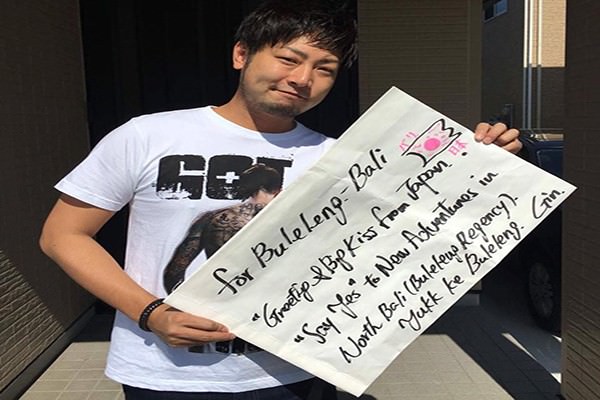 GET
バリ
日本
for Buleleng-Bali
"Greetip & Big Kiss from Japan.
"Say Yes" to New Adventures in
North Bali (Buleleng Regency).
Yukk ke Buleleng. Gin.